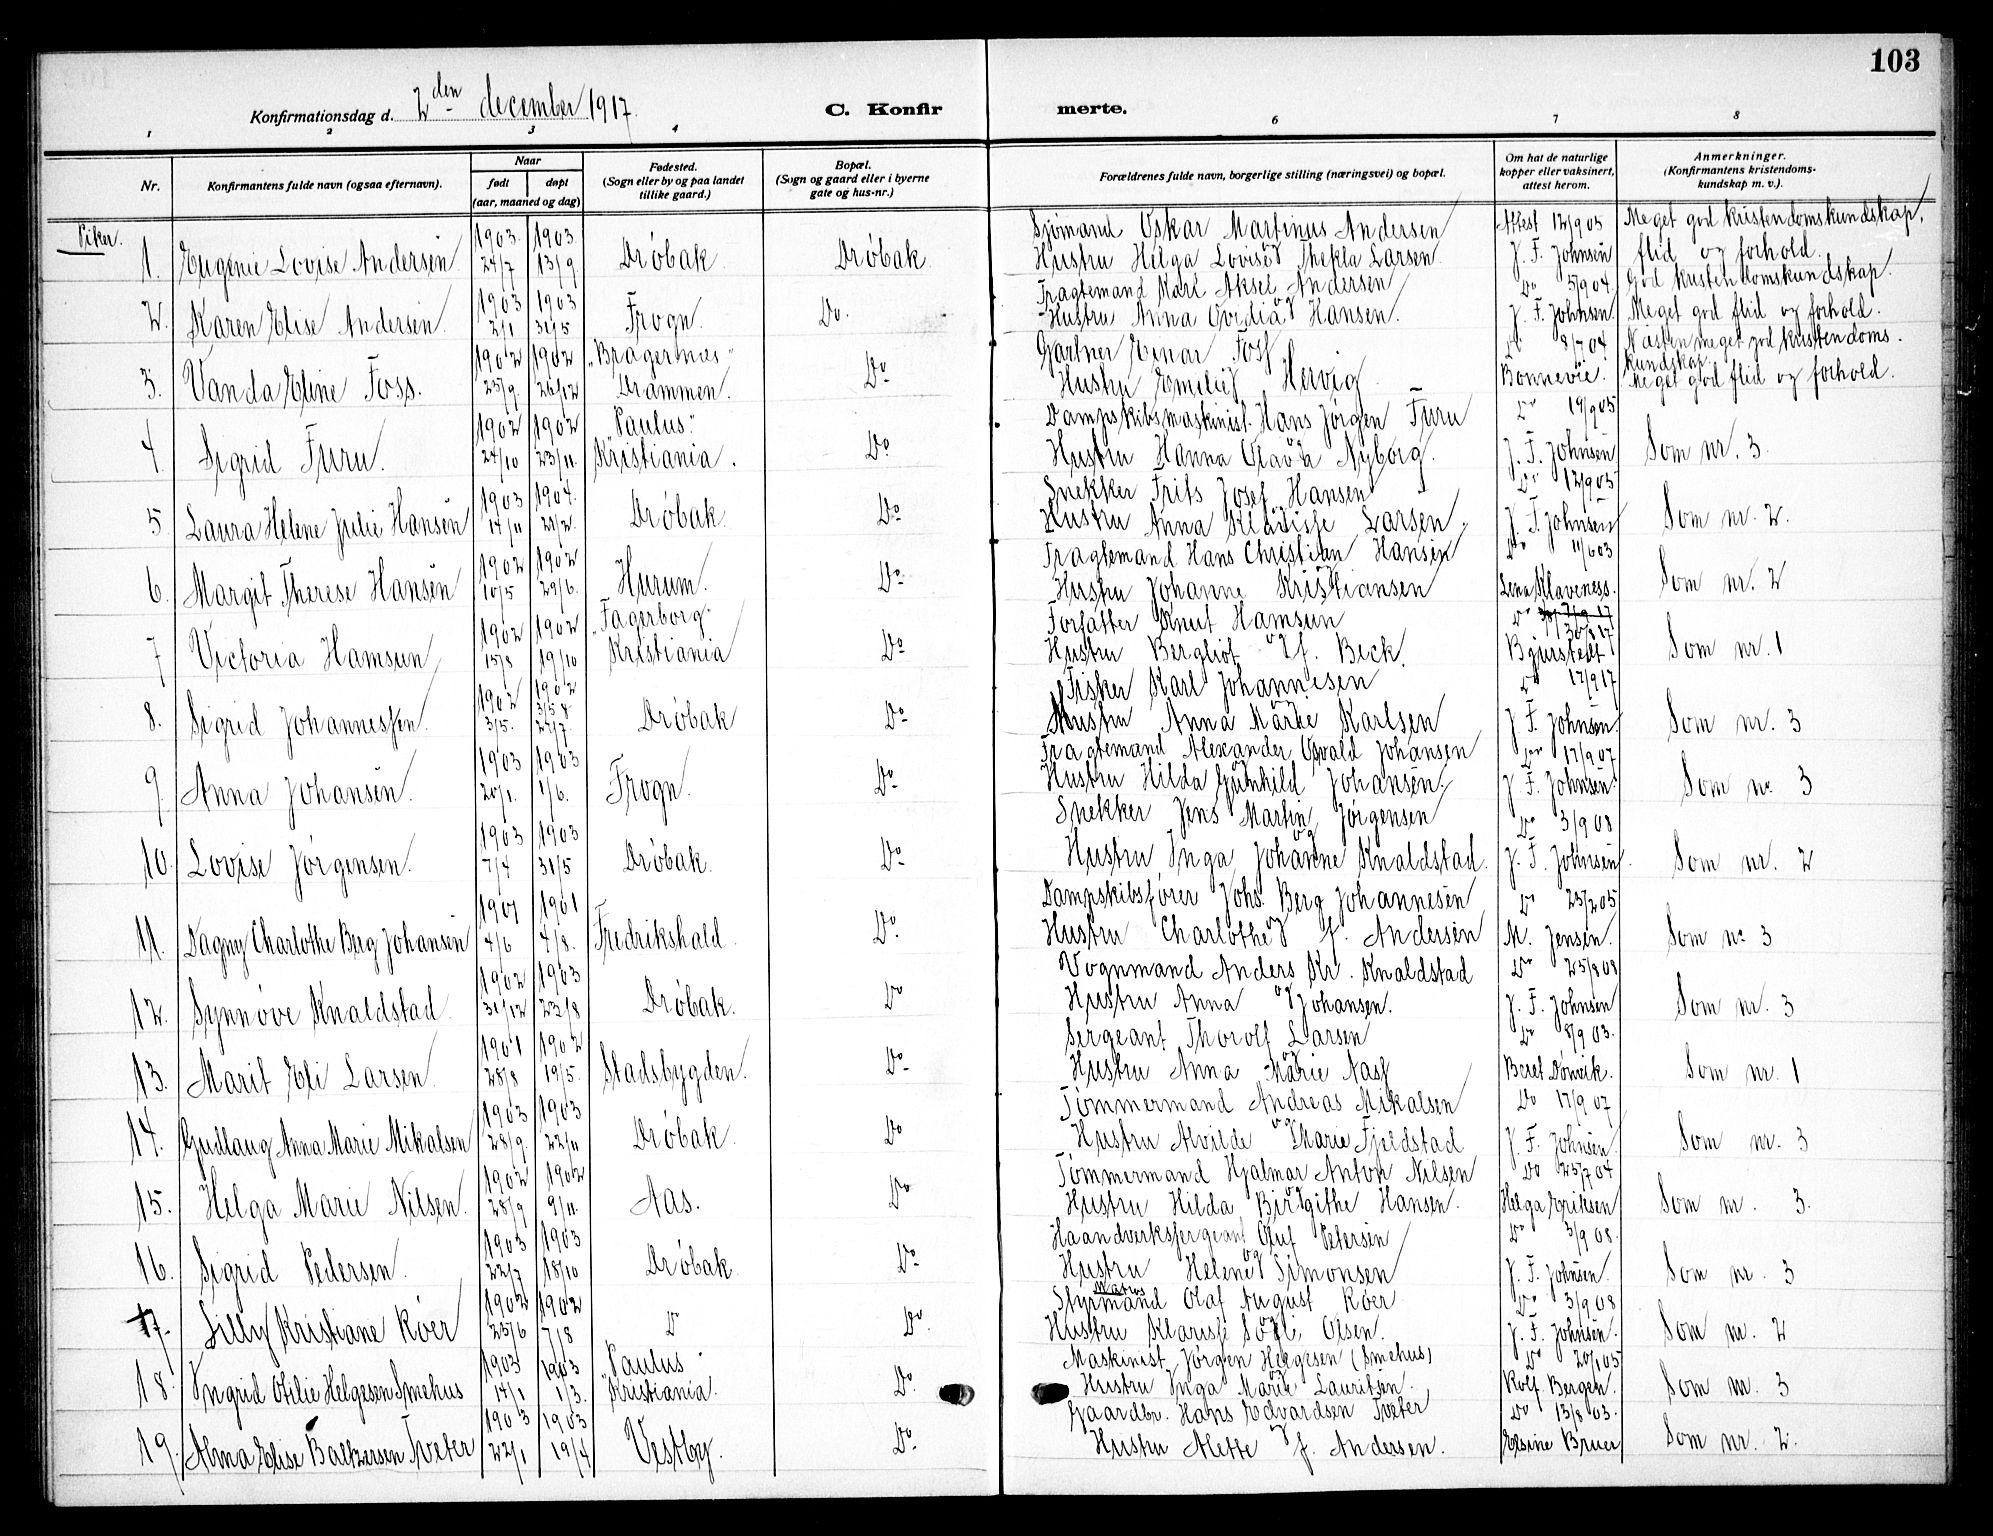 103
Konfirmationsdag d. 2den december 1917.
C. Konfirmerte.
1 2 3 4 6 7 8
Nr.
Konfirmantens fulde navn (ogsaa efternavn).
Naar
født
døpt
(aar, maaned og dag)
Fødested.
(Sogn eller by og paa landet
tillike gaard.)
Bopæl.
(Sogn og gaard eller i byerne
gate og hus-nr.)
Forældrenes fulde navn, borgerlige stilling (næringsvei) og bopæl.
Om hat de naturlige
kopper eller vaksinert,
attest herom.
Anmerkninger.
(Konfirmantens kristendoms-
kundskap m. v.).
Piker.
1. Eugenie Lovise Andersen 1903 24/7 1903 13/9 Drøbak Drøbak
Sjømand Oskar Martinus Andersen
Hustru Helga Lovise f. Thekla Larsen
Attest 12/9 05
J. F. Johnsen
Meget god kristendomskundskap,
flid og forhold.
2. Karen Elise Andersen 1903 2/1 1903 31/5 Frogn. Do.
Fragtemand Karl Aksel Andersen
Hustru Anna Ovidia f. Hansen.
Do 5/9 04
J. F. Johnsen
God kristendomskundskap.
Meget god flid og forhold.
3. Vanda Eline Foss. 1902 25/9 1902 26/12 "Bragernes" Drammen. Do
Gartner Einar Foss
Hustru Emelie f. Hervig
Do 8/7 04
Bonnevie.
Næsten meget god kristendoms-
kundskap.
Meget god flid og forhold.
4 Sigrid Furu. 1902 24/10 1902 23/11 "Paulus" Kristiania. Do
Dampskibsmaskinist Hans Jørgen Furu
Hustru Hanna f. Nyborg.
Do 19/9 05
J. F. Johnsen
Som nr. 3.
5 Laura Helene Julie Hansen 1903 14/11 1904 21/2 Drøbak. Do
Snekker Frits Josef Hansen
Hustru Anna f. Larsen.
Do 12/9 05
J. F. Johnsen
Som nr. 2.
6. Margit Therese Hansen 1902 10/5 1902 29/6 Hurum. Do
Fragtemand Hans Christian Hansen
Hustru Johanne f. Kristiansen
Do 11/6 03
Lina Klaveness.
Som nr. 2
7 Victoria Hamsun 1902 15/8 1902 19/10 "Fagerborg" Kristiania Do
Forfatter Knut Hamsun
Hustru Bergliot f. Beck.
Do 30/8 17
Bjurstedt
Som nr. 1
8. Sigrid Johannessen. 1902 3/5 1902 27/7 Drøbak Do
Fisker Karl Johannesen
Hustru Anna Marie f. Karlsen
Do 17/9 17
J. F. Johnsen.
Som nr. 3
9. Anna Johansen. 1903 20/1 1903 1/6 Frogn. Do
Fragtemand Alexander Osvald Johansen
Hustru Hilda Gunhild f. Johansen.
Do 17/9 07
J. F. Johnsen.
Som nr. 3
10. Lovise Jørgensen. 1903 7/4 1903 31/5 Drøbak. Do
Snekker Jens Martin Jørgensen
Hustru Inga Johanne f. Knaldstad.
Do 3/9 08
J. F. Johnsen.
Som nr. 2
11. Dagny Charlothe Berg Johansen 1901 4/6 1901 4/8 Fredrikshald. Do.
Dampskibsfører Johs. Berg Johannesen
Hustru Charlothe f. Andersen
Do 25/2 05
M. Jensen.
Som nr 3
12. Synnøve Knaldstad. 1902 31/12 1903 23/8 Drøbak. Do
Vognmand Anders Kr. Knaldstad
Hustru Anna f. Johansen.
Do 25/8 08
J. F. Johnsen
Som nr. 3
13. Marit Eli Larsen. 1901 28/8 1902 19/5 Stadsbygden. Do
Sergeant Thorolf Larsen
Hustru Anna Marie f. Aas
Do 8/9 03.
Beret Dønvik.
Som nr. 1
14. Gudlaug Anna Marie Mikalsen 1903 28/9 1903 22/11 Drøbak. Do
Tømmermand Andreas Mikalsen
Hustru Alvilde Marie f. Fjeldstad
Do 17/9 07
J. F. Johnsen.
Som nr. 3
15. Helga Marie Nilsen. 1902 28/9 1902 9/11 Aas. Do
Tømmermand Hjalmar Anton Nilsen
Hustru Hilda Birgithe f. Hansen.
Do 25/7 04
Helga Eriksen
Som nr. 3.
16. Sigrid Pedersen. 1903 22/7 1903 18/10 Drøbak. Do
Haandverkssergeant Oluf Petersen
Hustru Helene f. Simonsen
Do 3/9 08.
J. F. Johnsen.
Som nr. 3
17. Lilly Kristiane Køer 1902 25/6 1902 7/8 D Do.
Styrmand Olaf August Køer
Hustru Klarisse Sofie f. Olsen.
Do 3/9 08
J. F. Johnsen.
Som nr. 2
18. Ingrid Otilie Helgesen Smehus 1903 14/1 1903 1/3 "Paulus" Kristiania. Do.
Maskinist Jørgen Helgesen (Smehus)
Hustru Inga Marie f. Lauritsen.
Do 20/1 05
Rolf Bergen.
Som nr. 3
19. Alma Elise Baltzersen Tveter 1903 22/1 1903 19/4 Vestby. Do
Gaardbr. Hans Edvardsen Tveter
Hustru Alette f. Andersen.
Do 13/8 03.
Elsine Bruer
Som nr. 2.